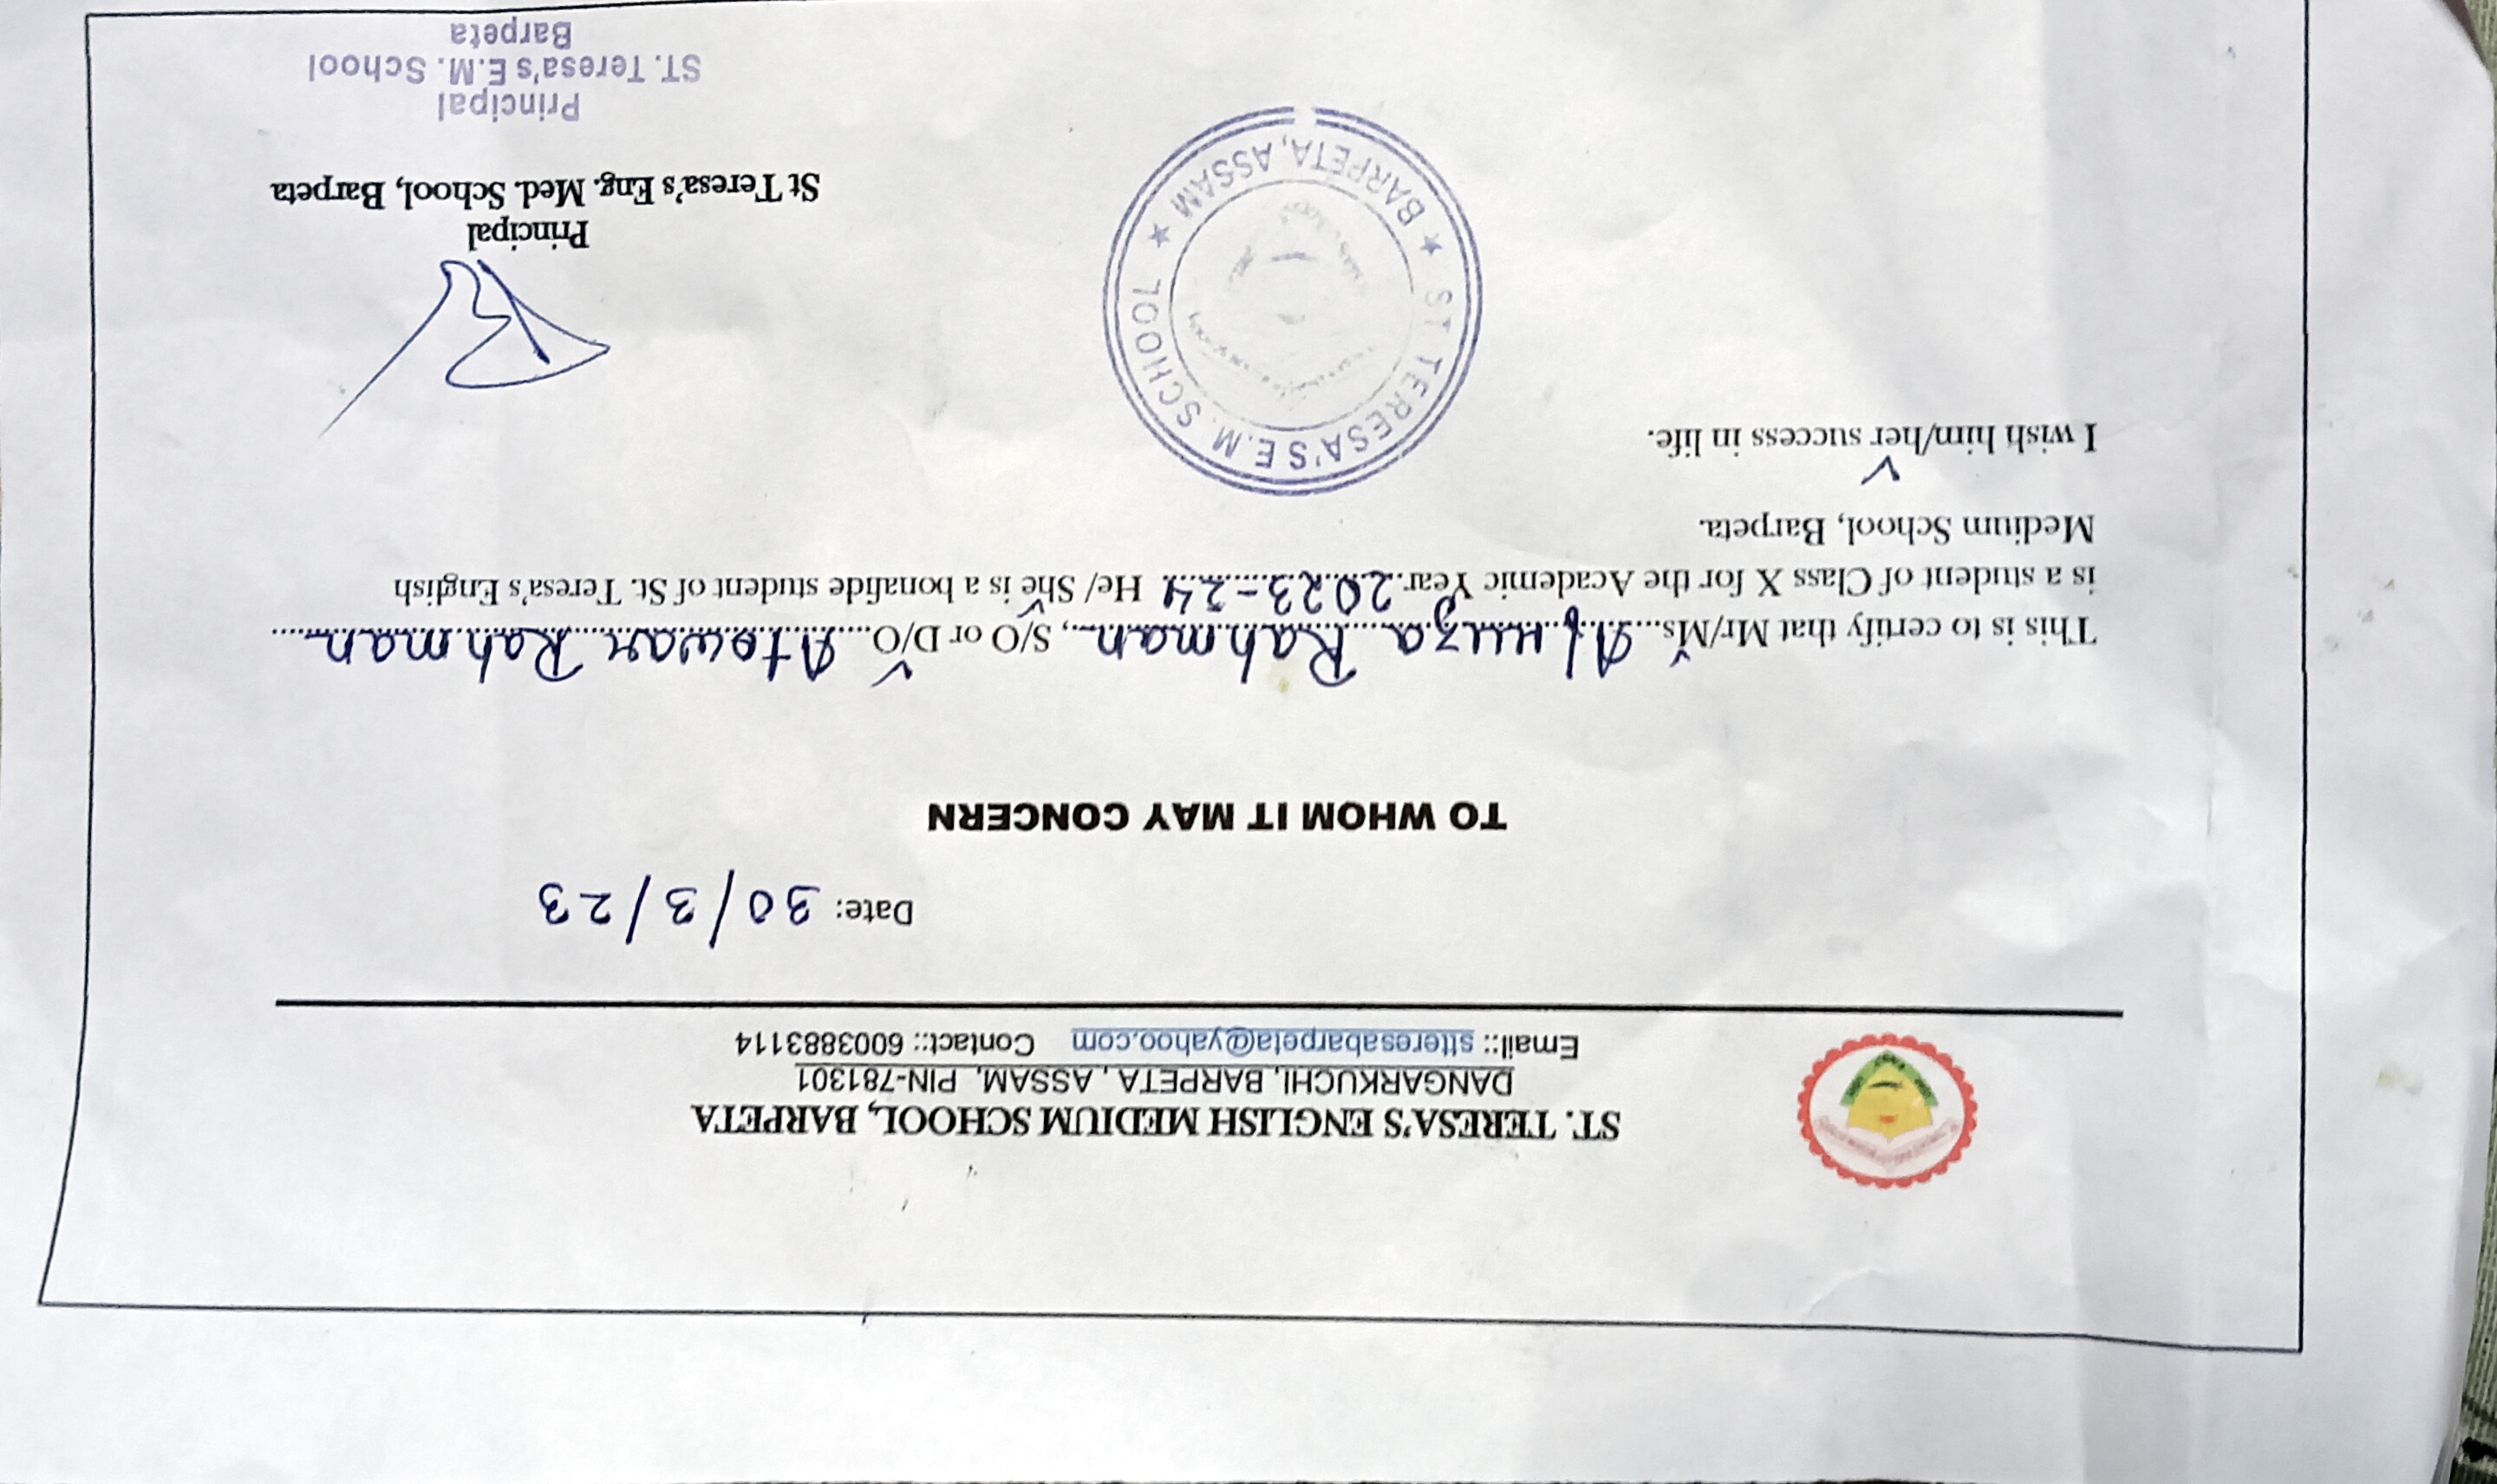 ST. TERESA'S ENGLISH MEDIUM SCHOOL, BARPETA
DANGARKUCHI, BARPETA , ASSAM, PIN-781301
Email:: stteresabarpeta@yahoo.com Contact:: 6003883114
Date: 30/3/23
TO WHOM IT MAY CONCERN
This is to certify that Mr/Ms. Afruza Rahman, S/O or D/O Atowar Rahman
is a student of Class X for the Academic Year 2023-24. He/ She is a bonafide student of St. Teresa's English
Medium School, Barpeta.
I wish him/her success in life.
ST TERESA'S E.M. SCHOOL
★ BARPETA, ASSAM ★
Principal
St Teresa's Eng. Med. School, Barpeta
Principal
ST. Teresa's E.M. School
Barpeta